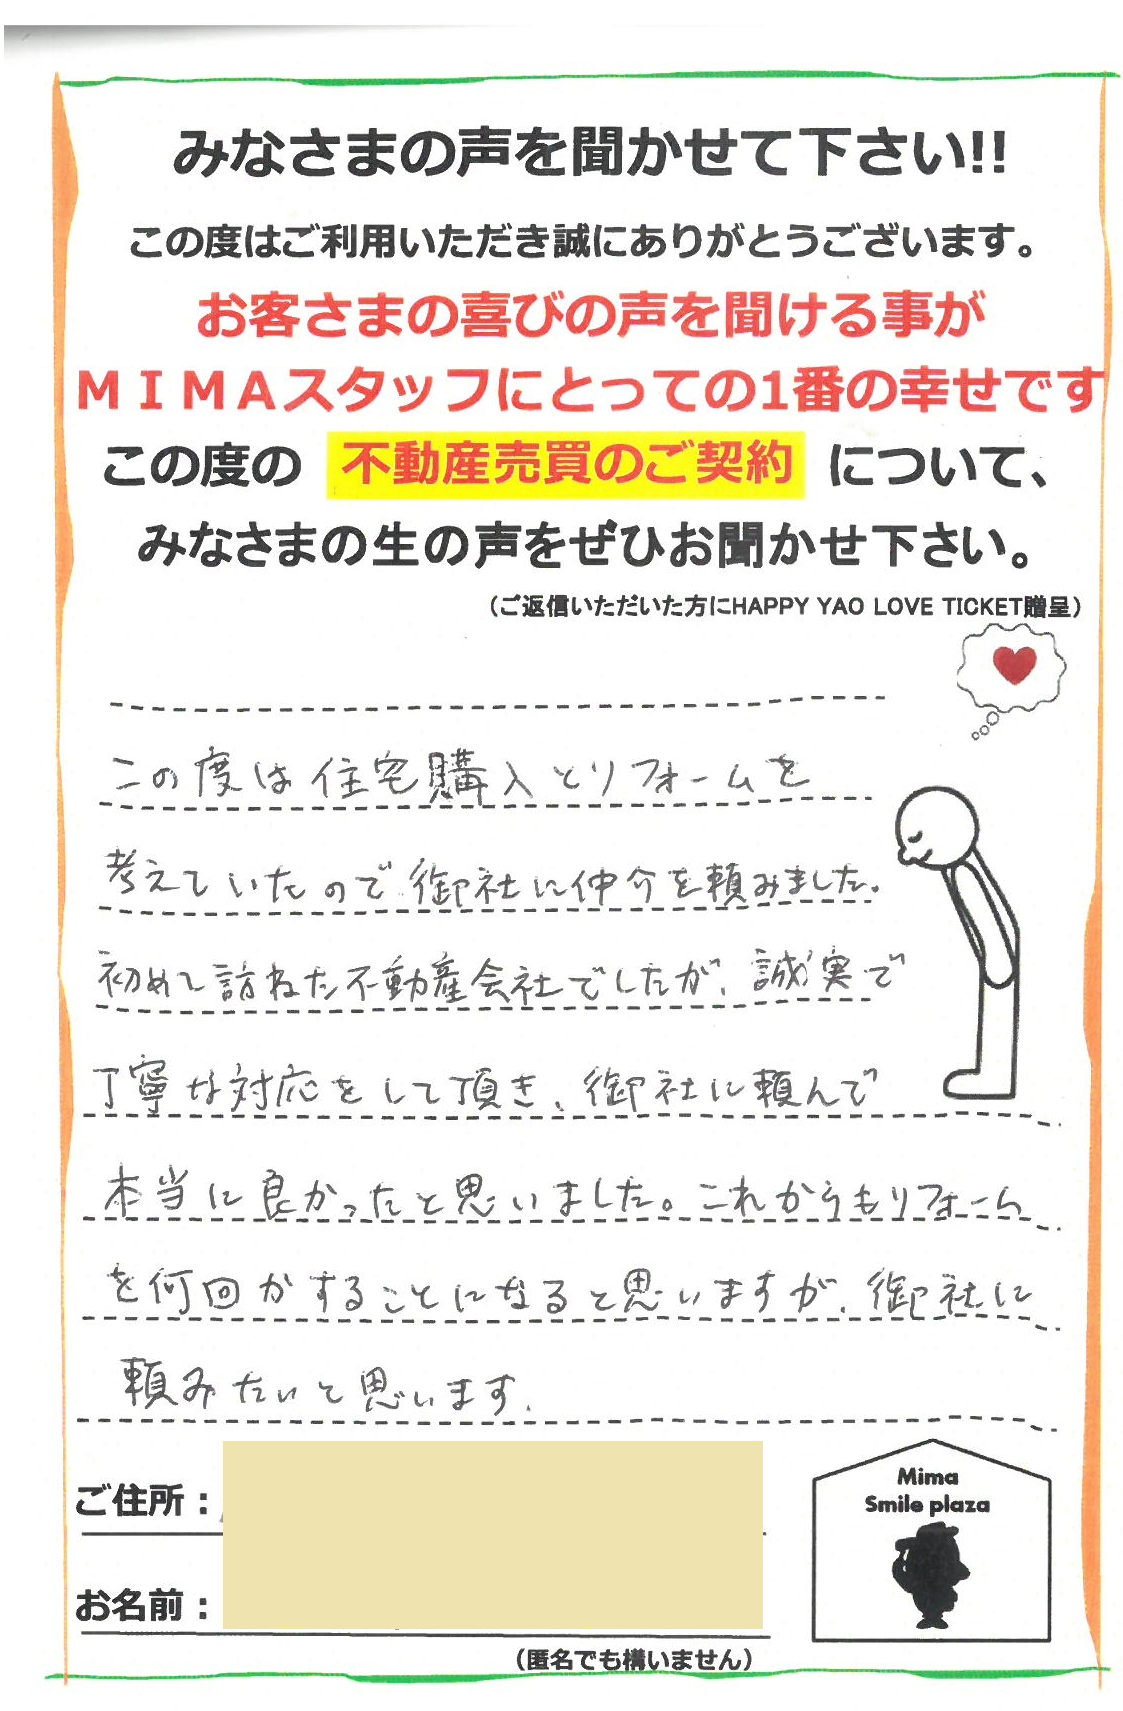 みなさまの声を聞かせて下さい!!
この度はご利用いただき誠にありがとうございます。
お客さまの喜びの声を聞ける事が
ＭＩＭＡスタッフにとっての1番の幸せです
この度の 不動産売買のご契約 について、
みなさまの生の声をぜひお聞かせ下さい。
（ご返信いただいた方にHAPPY YAO LOVE TICKET贈呈）
この度は住宅購入とリフォームを
考えていたので御社に仲介を頼みました。
初めて訪ねた不動産会社でしたが、誠実で
丁寧な対応をして頂き、御社に頼んで
本当に良かったと思いました。これからもリフォーム
を何回かすることになると思いますが、御社に
頼みたいと思います.
ご住所：
お名前：
（匿名でも構いません）
Mima
Smile plaza